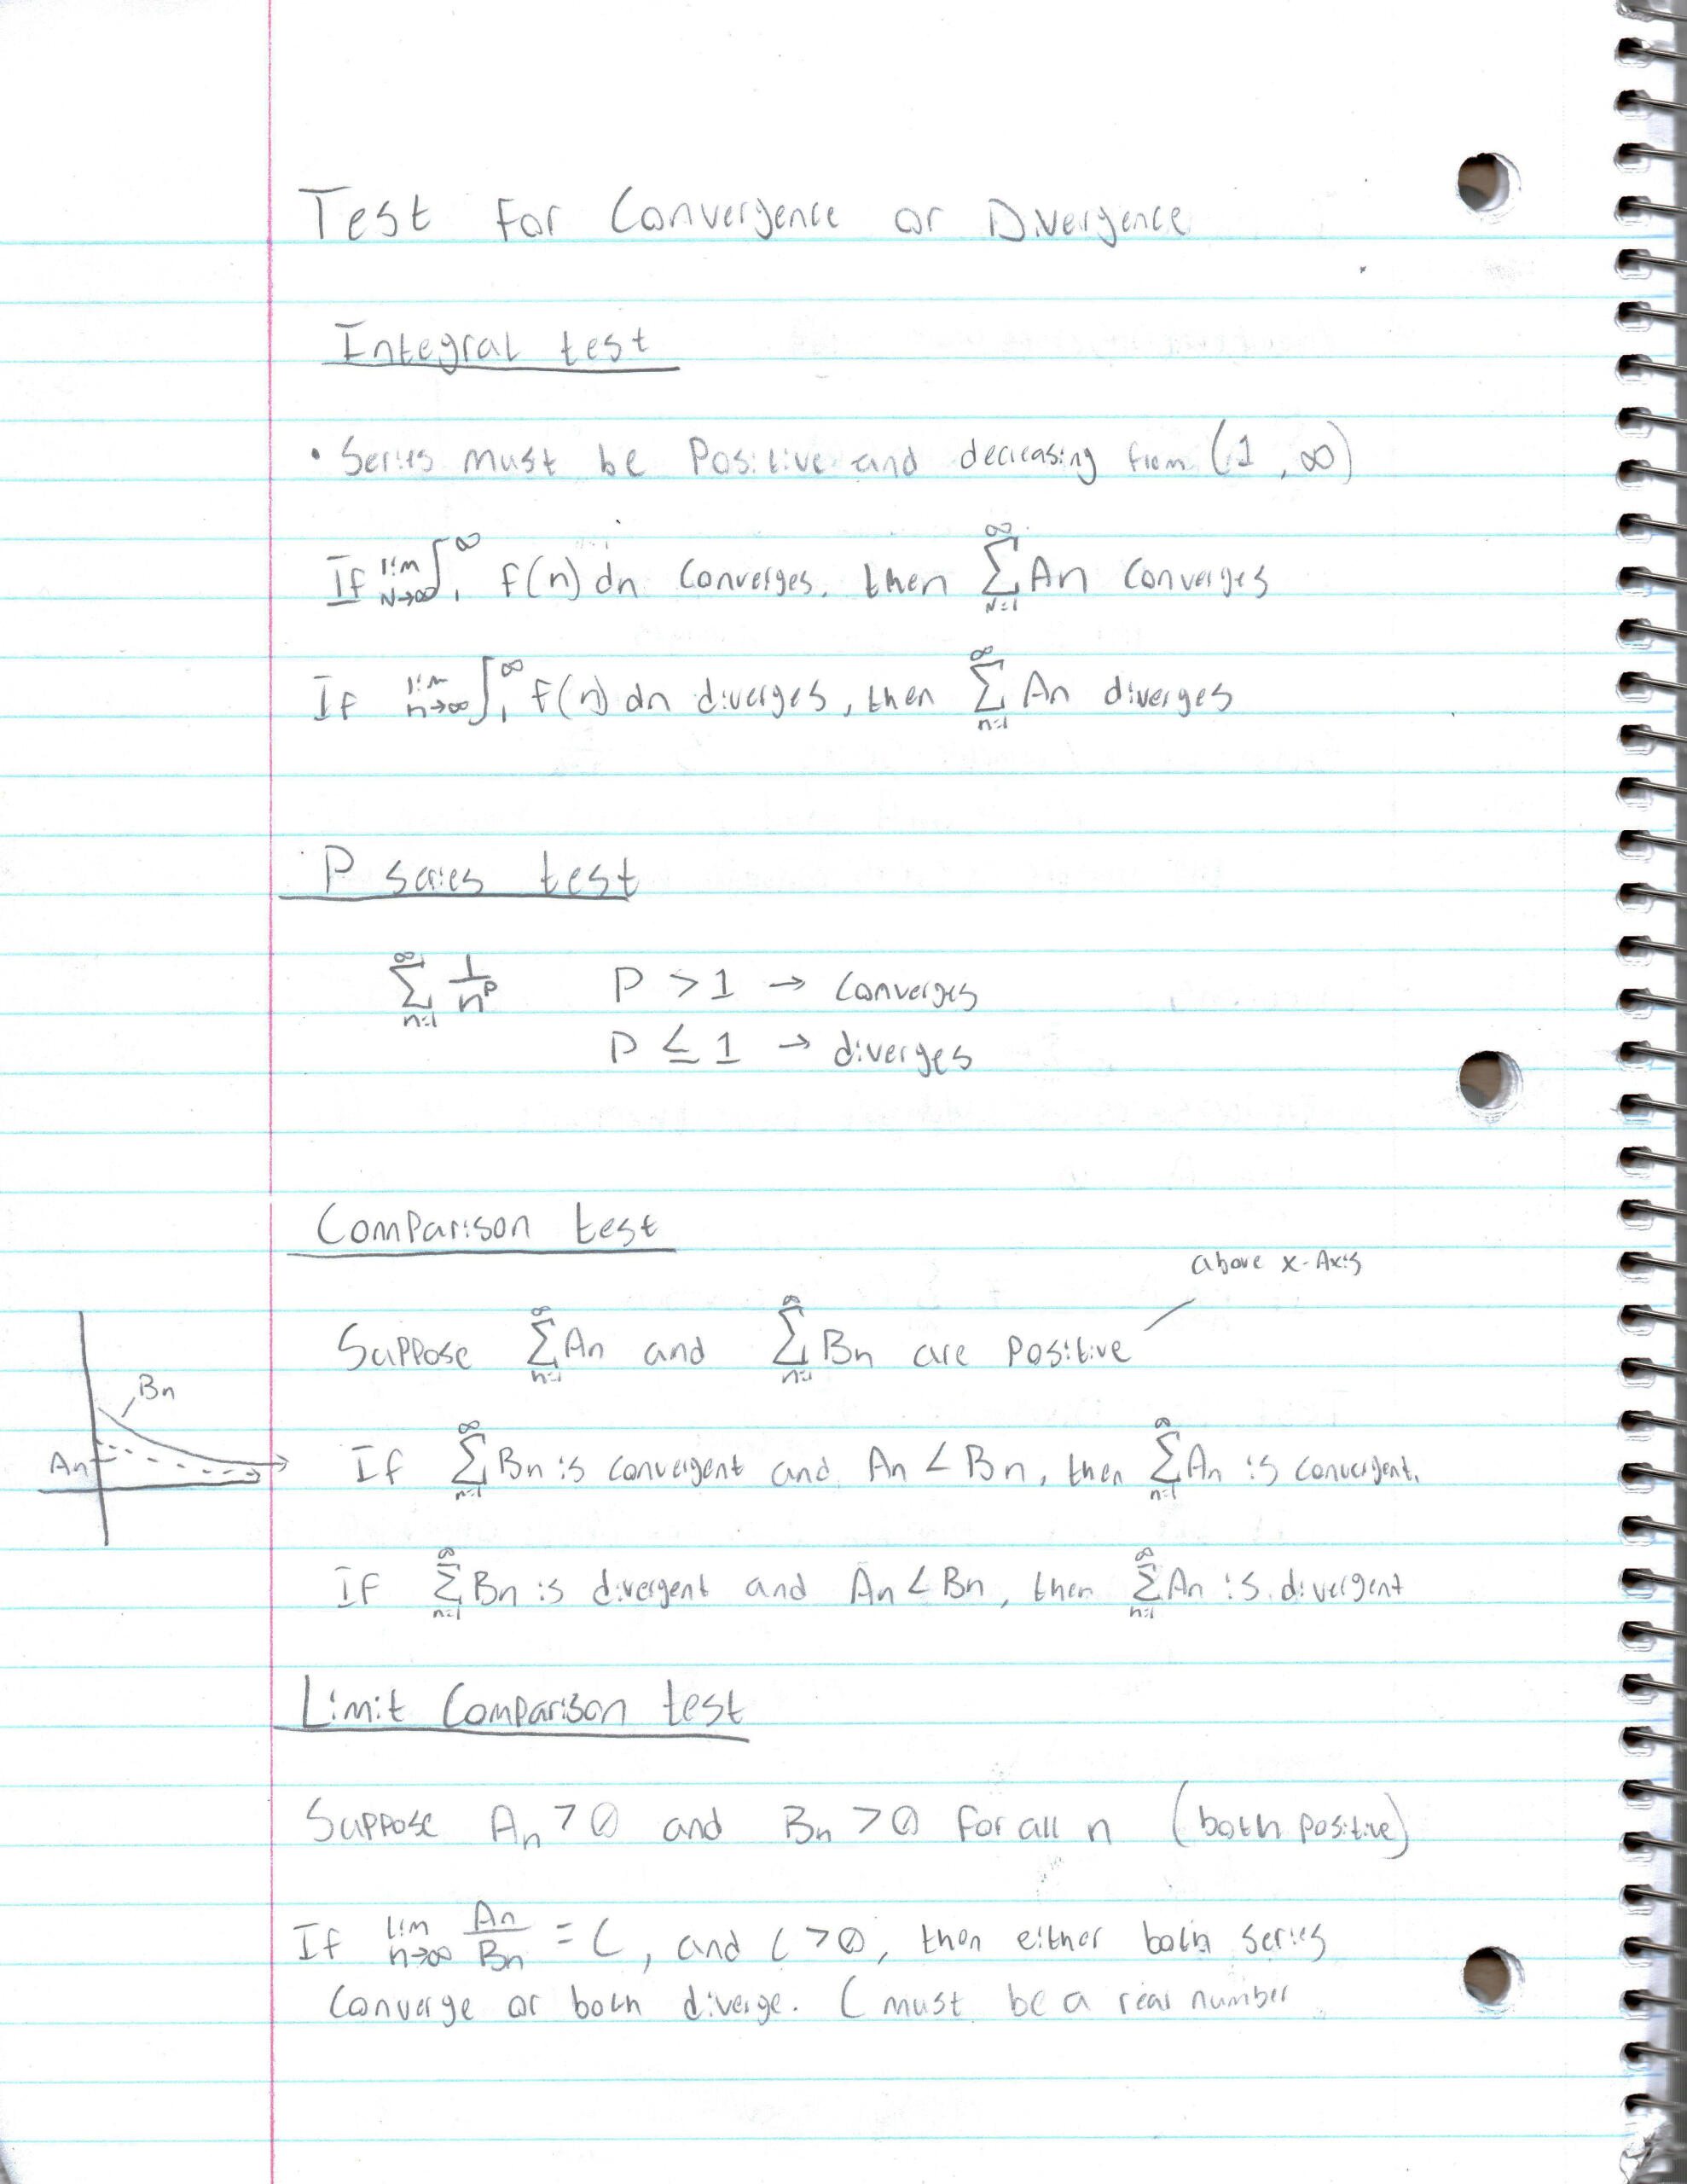 Test For Convergence or Divergence
Integral test
• Series must be Positive and decreasing from (1, ∞)
If lim N→∞ ∫₁^∞ f(n) dn Converges, then ∑_{N=1}^∞ An Converges
If lim n→∞ ∫₁^∞ f(n) dn diverges, then ∑_{n=1}^∞ An diverges
P series test
∑_{n=1}^∞ 1/n^p P > 1 → Converges
P ≤ 1 → diverges
Comparison test
above x-Axis
Suppose ∑_{n=1}^∞ An and ∑_{n=1}^∞ Bn are positive
Bn
An
If ∑_{n=1}^∞ Bn is convergent and An < Bn, then ∑_{n=1}^∞ An is convergent.
If ∑_{n=1}^∞ Bn is divergent and An < Bn, then ∑_{n=1}^∞ An is divergent
Limit Comparison test
Suppose An > 0 and Bn > 0 for all n (both positive)
If lim n→∞ An/Bn = C, and C > 0, then either both series
Converge or both diverge. C must be a real number